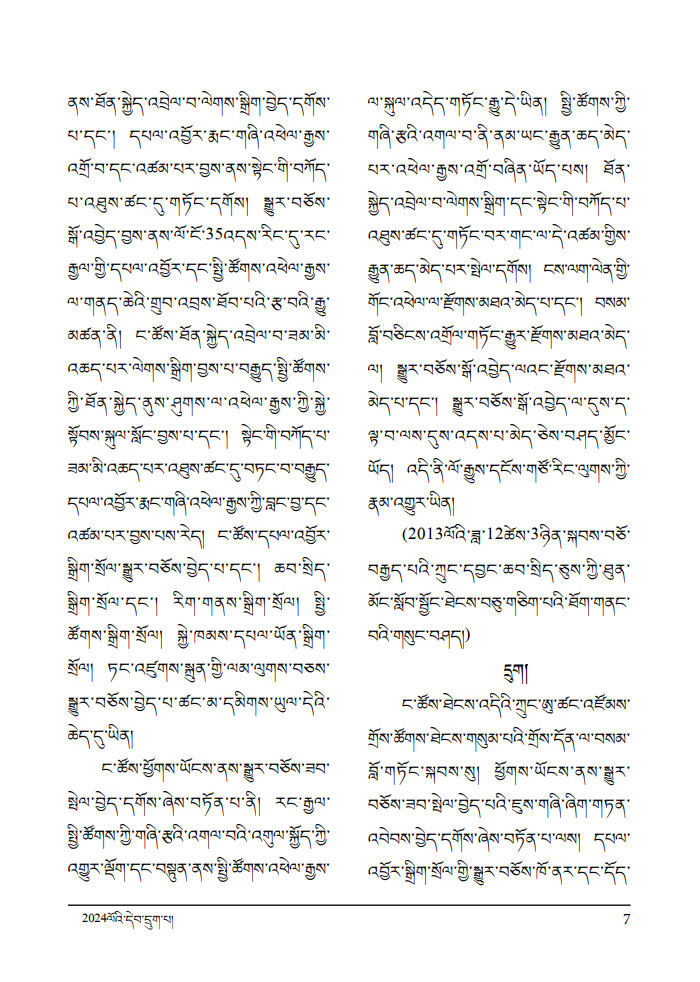 ནས་ཐོན་སྐྱེད་འབྲེལ་བ་ལེགས་སྒྲིག་བྱེད་དགོས་
པ་དང་། དཔལ་འབྱོར་རྨང་གཞི་འཕེལ་རྒྱས་
འགྲོ་བ་དང་འཚམ་པར་བྱས་ནས་སྟེང་གི་བཀོད་
པ་འཐུས་ཚང་དུ་གཏོང་དགོས། སྒྱུར་བཅོས་
སྒོ་འབྱེད་བྱས་ནས་ལོ་ངོ་35འདས་རིང་དུ་རང་
རྒྱལ་གྱི་དཔལ་འབྱོར་དང་སྤྱི་ཚོགས་འཕེལ་རྒྱས་
ལ་གནད་ཆེའི་གྲུབ་འབྲས་ཐོབ་པའི་རྩ་བའི་རྒྱུ་
མཚན་ནི། ང་ཚོས་ཐོན་སྐྱེད་འབྲེལ་བ་ཟམ་མི་
འཆད་པར་ལེགས་སྒྲིག་བྱས་པ་བརྒྱུད་སྤྱི་ཚོགས་
ཀྱི་ཐོན་སྐྱེད་ནུས་ཤུགས་ལ་འཕེལ་རྒྱས་ཀྱི་སྐྱེ་
སྟོབས་སྐུལ་སློང་བྱས་པ་དང་། སྟེང་གི་བཀོད་པ་
ཟམ་མི་འཆད་པར་འཐུས་ཚང་དུ་བཏང་བ་བརྒྱུད་
དཔལ་འབྱོར་རྨང་གཞི་འཕེལ་རྒྱས་ཀྱི་བླང་བྱ་དང་
འཚམ་པར་བྱས་པས་རེད། ང་ཚོས་དཔལ་འབྱོར་
སྒྲིག་སྲོལ་སྒྱུར་བཅོས་བྱེད་པ་དང་། ཆབ་སྲིད་
སྒྲིག་སྲོལ་དང་། རིག་གནས་སྒྲིག་སྲོལ། སྤྱི་
ཚོགས་སྒྲིག་སྲོལ། སྐྱེ་ཁམས་དཔལ་ཡོན་སྒྲིག་
སྲོལ། ཏང་འཛུགས་སྐྲུན་གྱི་ལམ་ལུགས་བཅས་
སྒྱུར་བཅོས་བྱེད་པ་ཚང་མ་དམིགས་ཡུལ་དེའི་
ཆེད་དུ་ཡིན།
ང་ཚོས་ཕྱོགས་ཡོངས་ནས་སྒྱུར་བཅོས་ཟབ་
སྤེལ་བྱེད་དགོས་ཞེས་བཏོན་པ་ནི། རང་རྒྱལ་
སྤྱི་ཚོགས་ཀྱི་གཞི་རྩའི་འགལ་བའི་འགུལ་སྐྱོད་ཀྱི་
འགྱུར་ལྡོག་དང་བསྟུན་ནས་སྤྱི་ཚོགས་འཕེལ་རྒྱས་
ལ་སྐུལ་འདེད་གཏོང་རྒྱུ་དེ་ཡིན། སྤྱི་ཚོགས་ཀྱི་
གཞི་རྩའི་འགལ་བ་ནི་ནམ་ཡང་རྒྱུན་ཆད་མེད་
པར་འཕེལ་རྒྱས་འགྲོ་བཞིན་ཡོད་པས། ཐོན་
སྐྱེད་འབྲེལ་བ་ལེགས་སྒྲིག་དང་སྟེང་གི་བཀོད་པ་
འཐུས་ཚང་དུ་གཏོང་བར་གང་ལ་དེ་འཚམ་གྱིས་
རྒྱུན་ཆད་མེད་པར་སྤེལ་དགོས། ངས་ལག་ལེན་གྱི་
གོང་འཕེལ་ལ་རྫོགས་མཐའ་མེད་པ་དང་། བསམ་
བློ་བཅིངས་འགྲོལ་གཏོང་རྒྱུར་རྫོགས་མཐའ་མེད་
ལ། སྒྱུར་བཅོས་སྒོ་འབྱེད་ལའང་རྫོགས་མཐའ་
མེད་པ་དང་། སྒྱུར་བཅོས་སྒོ་འབྱེད་ལ་དུས་ད་
ལྟ་བ་ལས་དུས་འདས་པ་མེད་ཅེས་བཤད་མྱོང་
ཡོད། འདི་ནི་ལོ་རྒྱུས་དངོས་གཙོ་རིང་ལུགས་ཀྱི་
རྣམ་འགྱུར་ཡིན།
(2013ལོའི་ཟླ་12ཚེས་3ཉིན་སྐབས་བཅོ་
བརྒྱད་པའི་ཀྲུང་དབྱང་ཆབ་སྲིད་ཅུས་ཀྱི་ཐུན་
མོང་སློབ་སྦྱོང་ཐེངས་བཅུ་གཅིག་པའི་ཐོག་གནང་
བའི་གསུང་བཤད།)
དྲུག།
ང་ཚོས་ཐེངས་འདིའི་ཀྲུང་ཨུ་ཚང་འཛོམས་
གྲོས་ཚོགས་ཐེངས་གསུམ་པའི་གྲོས་དོན་ལ་བསམ་
བློ་གཏོང་སྐབས་སུ། ཕྱོགས་ཡོངས་ནས་སྒྱུར་
བཅོས་ཟབ་སྤེལ་བྱེད་པའི་ཇུས་གཞི་ཞིག་གཏན་
འབེབས་བྱེད་དགོས་ཞེས་བཏོན་པ་ལས། དཔལ་
འབྱོར་སྒྲིག་སྲོལ་གྱི་སྒྱུར་བཅོས་ཁོ་ནར་དང་དོད་
2024ལོའི་དེབ་དྲུག་པ། 7